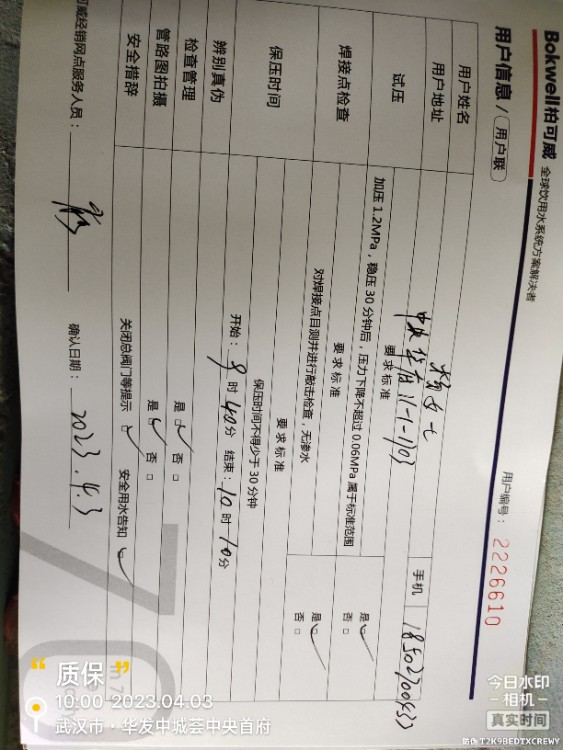 Bokwell柏可威 全球饮用水系统方案解决者
用户信息 / 用户联
用户编号： 2226610
用户姓名 杨女士
用户地址 中央华府11-1-1103 手机
试压 要求标准
加压1.2MPa，稳压30分钟后，压力下降不超过0.06MPa属于标准范围 是□ 否□
焊接点检查 要求标准
对焊接点目测并进行敲击检查，无渗水 是□ 否□
保压时间 要求标准
保压时间不得少于30分钟
开始：9时40分 结束：10时10分
辨别真伪
检查管理 是□ 否□
管路图拍摄 是□ 否□
安全措辞 关闭总阀门等提示 安全用水告知
可威经销网点服务人员： 确认日期： 2023.4.3
质保
10:00 2023.04.03
武汉市·华发中城荟中央首府
今日水印
相机
真实时间
防伪 T2K9BEDTXCREWY